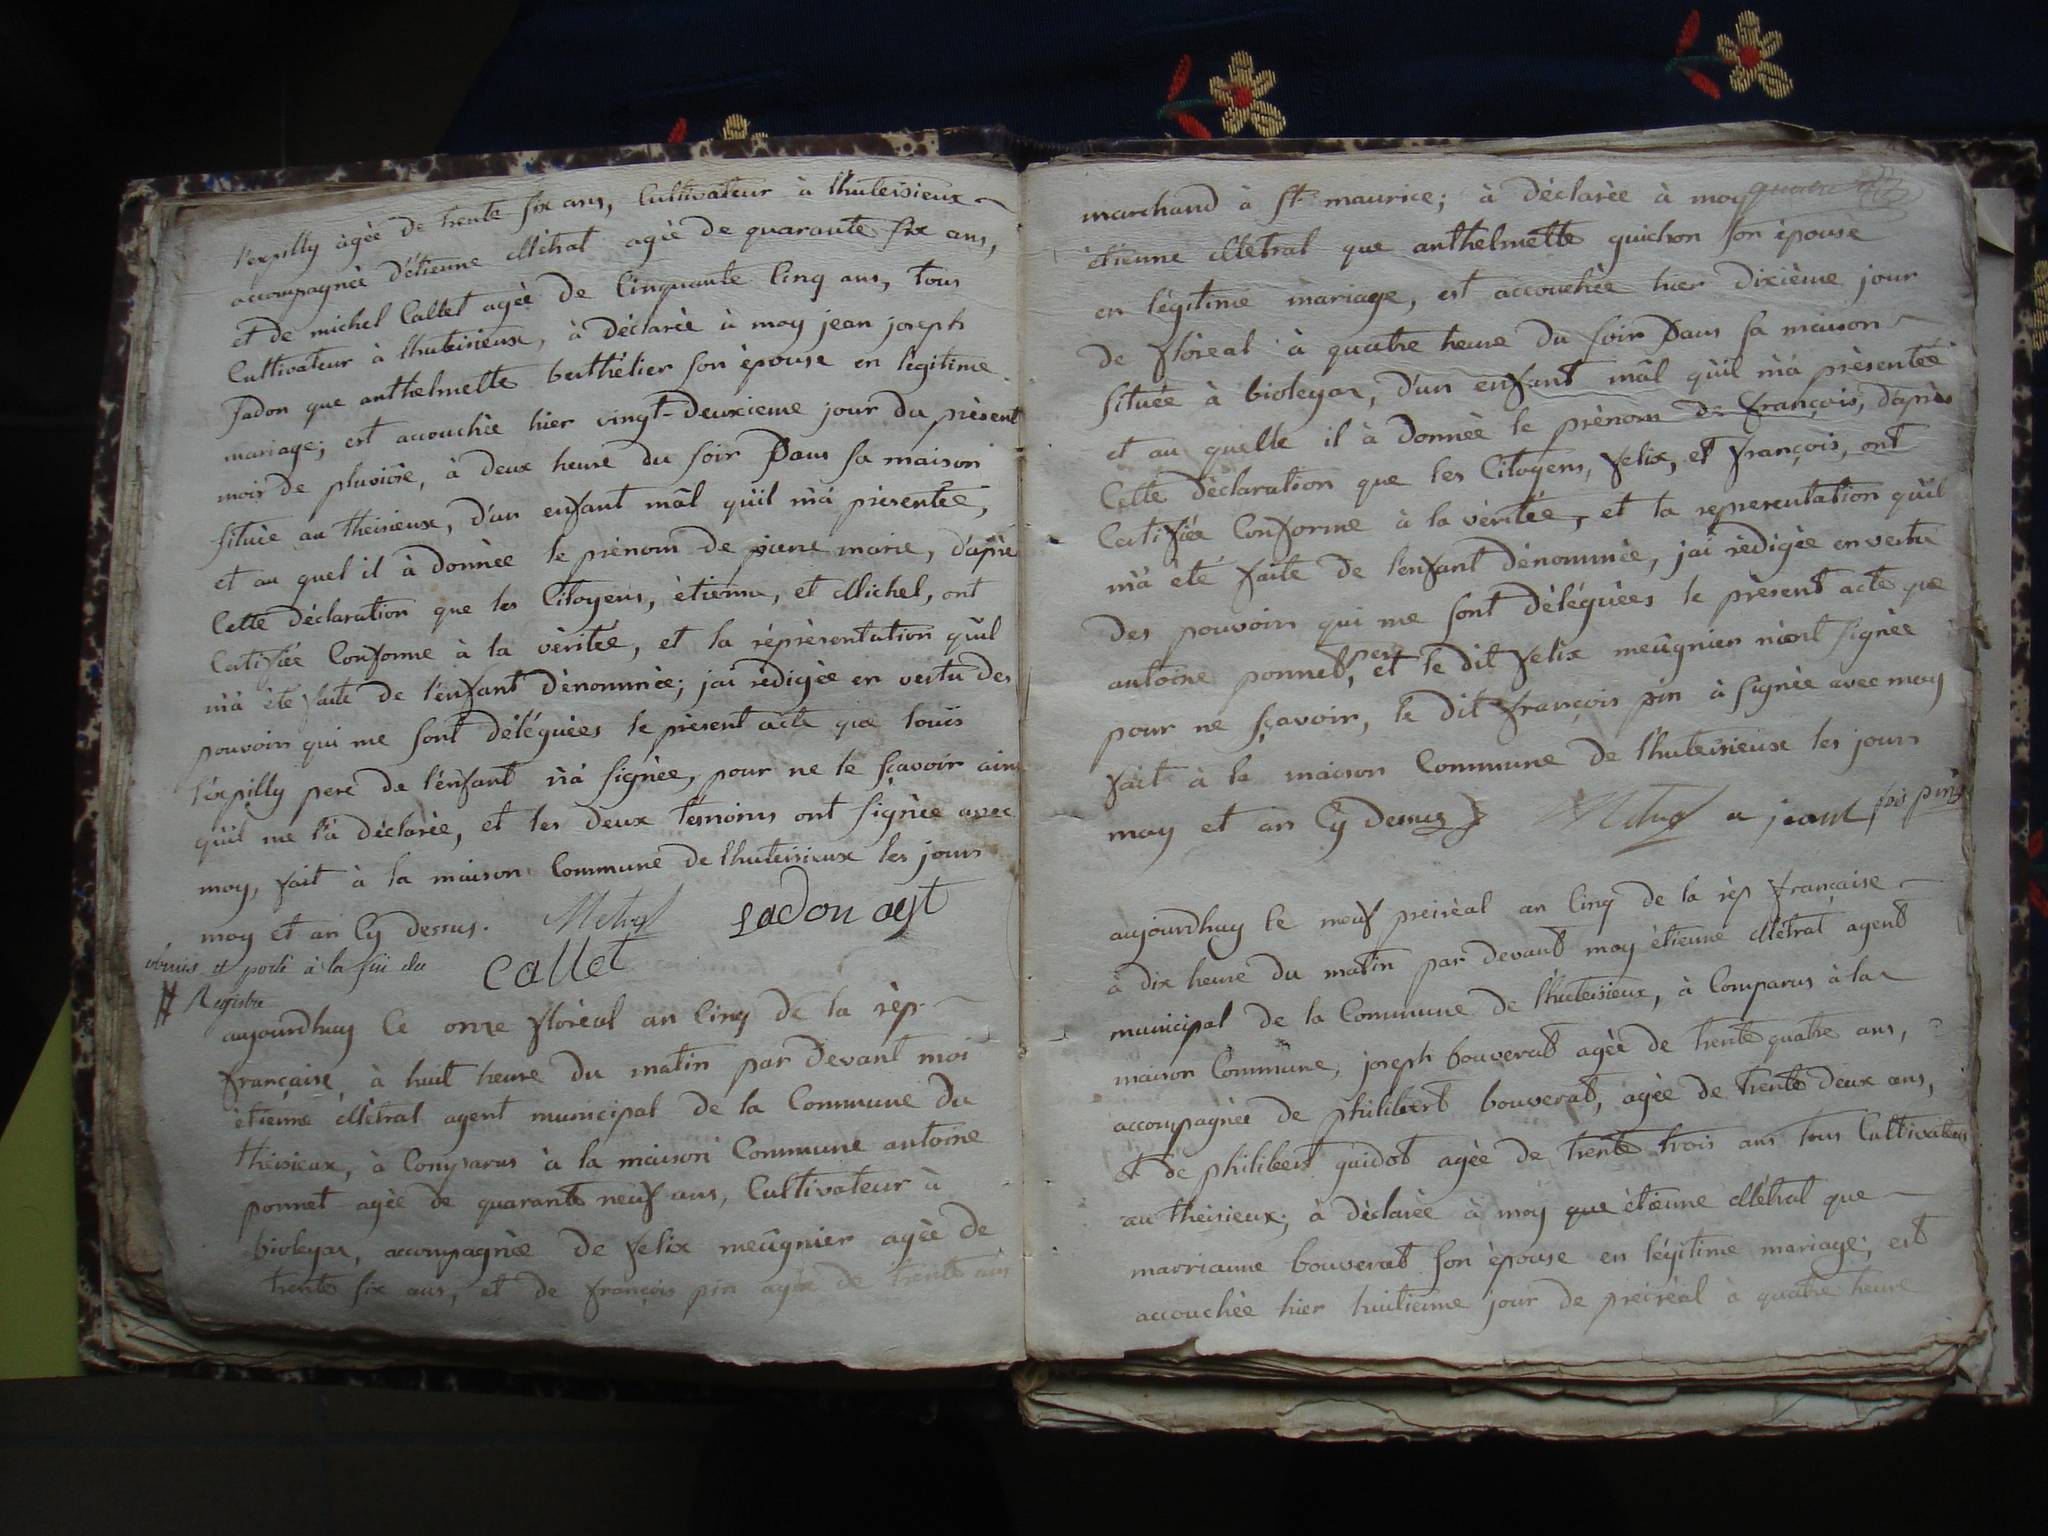 l'expilly àgèe de trente six ans, Cultivateur à lhuteisieux
accompagnèe d'ètienne Mètrat agèe de quarante six ans,
et de michel Callet agèe de Cinquante Cinq ans, tous
Cultivateur à lhuteisieux, à dèclarèe à moy jean joseph
Jadon que anthelmette berthèlier son èpouse en lègitime
mariage; est accouchèe hier vingt-deuxieme jour du prèsent
mois de pluviôse, à deux heure du soir Dans sa maison
situèe au theisieux, d'un enfant mâl qu'il m'à prèsentèe,
et au quel il à donnèe le prènom de piere marie, d'après
Cette dèclaration que les Citoyens, ètienne, et Michel, ont
Certifièe Conforme à la vèritèe, et la rèprèsentation qu'il
m'à ètè faite de l'enfant dènommèe; jai rèdigèe en vertu des
pouvoirs qui me sont dèlèguèes le prèsent acte que louïs
l'èxpilly pere de l'enfant n'à signèe, pour ne le sçavoir ains
qu'il me l'à dèclarèe, et les deux tesmoins ont signèe avec
moy, fait à la maison Commune de lhuteisieux les jours
moy et an Cy dessus.
Jadon agt
Callet
obmis et portè à la fin du
Registre
aujourdhuy le onze florèal an Cinq de la rèp
française, à huit heure du matin par devant moi
ètienne Mètrat agent municipal de la Commune du
theisieux, à Comparus à la maison Commune antoine
ponnet agèe de quarante neuf ans, Cultivateur à
bioleyar, accompagnèe de felix meûgnier agèe de
trente six ans, et de françois pin agèe de trente ans
marchand à St maurice; à dèclarèe à moy
ètienne Mètrat que anthelmette guichon son èpouse
en lègitime mariage, est accouchèe hier dixième jour
de flòreal à quatre heure du soir Dans sa maison
situèe à bioleyar, d'un enfant mâl qu'il m'à prèsentèe
et au quelle il à donnèe le prènom de françois, d'après
Cette dèclaration que les Citoyens, felix, et françois, ont
Certifièe Conforme à la vèritèe, et la representation qu'il
m'à ètè faite de l'enfant dènommèe, jai rèdigèe en vertu
des pouvoirs qui me sont dèlèguèes le prèsent acte que
antoine ponnet, pere et le dit felix meûgnier n'ont signèe
pour ne sçavoir, le dit françois pin à signèe avec moy
fait à la maison Commune de lhuteisieux les jours
moy et an Cy dessus
aujourdhuy le neuf preirèal an Cinq de la rèp française
à dix heure du matin par devant moy ètienne Mètrat agent
municipal de la Commune de lhuteisieux, à Comparus à la
maison Commune, joseph bouverat agèe de trente quatre ans,
accompagnèe de philibert bouverat, agèe de trente deux ans,
et de philibert guidot agèe de trente trois ans tous Cultivateurs
au theisieux; à dèclarèe à moy que ètienne Mètrat que
marrianne bouverat son èpouse en lègitime mariage; est
accouchèe hier huitieme jour de preirèal à quatre heure